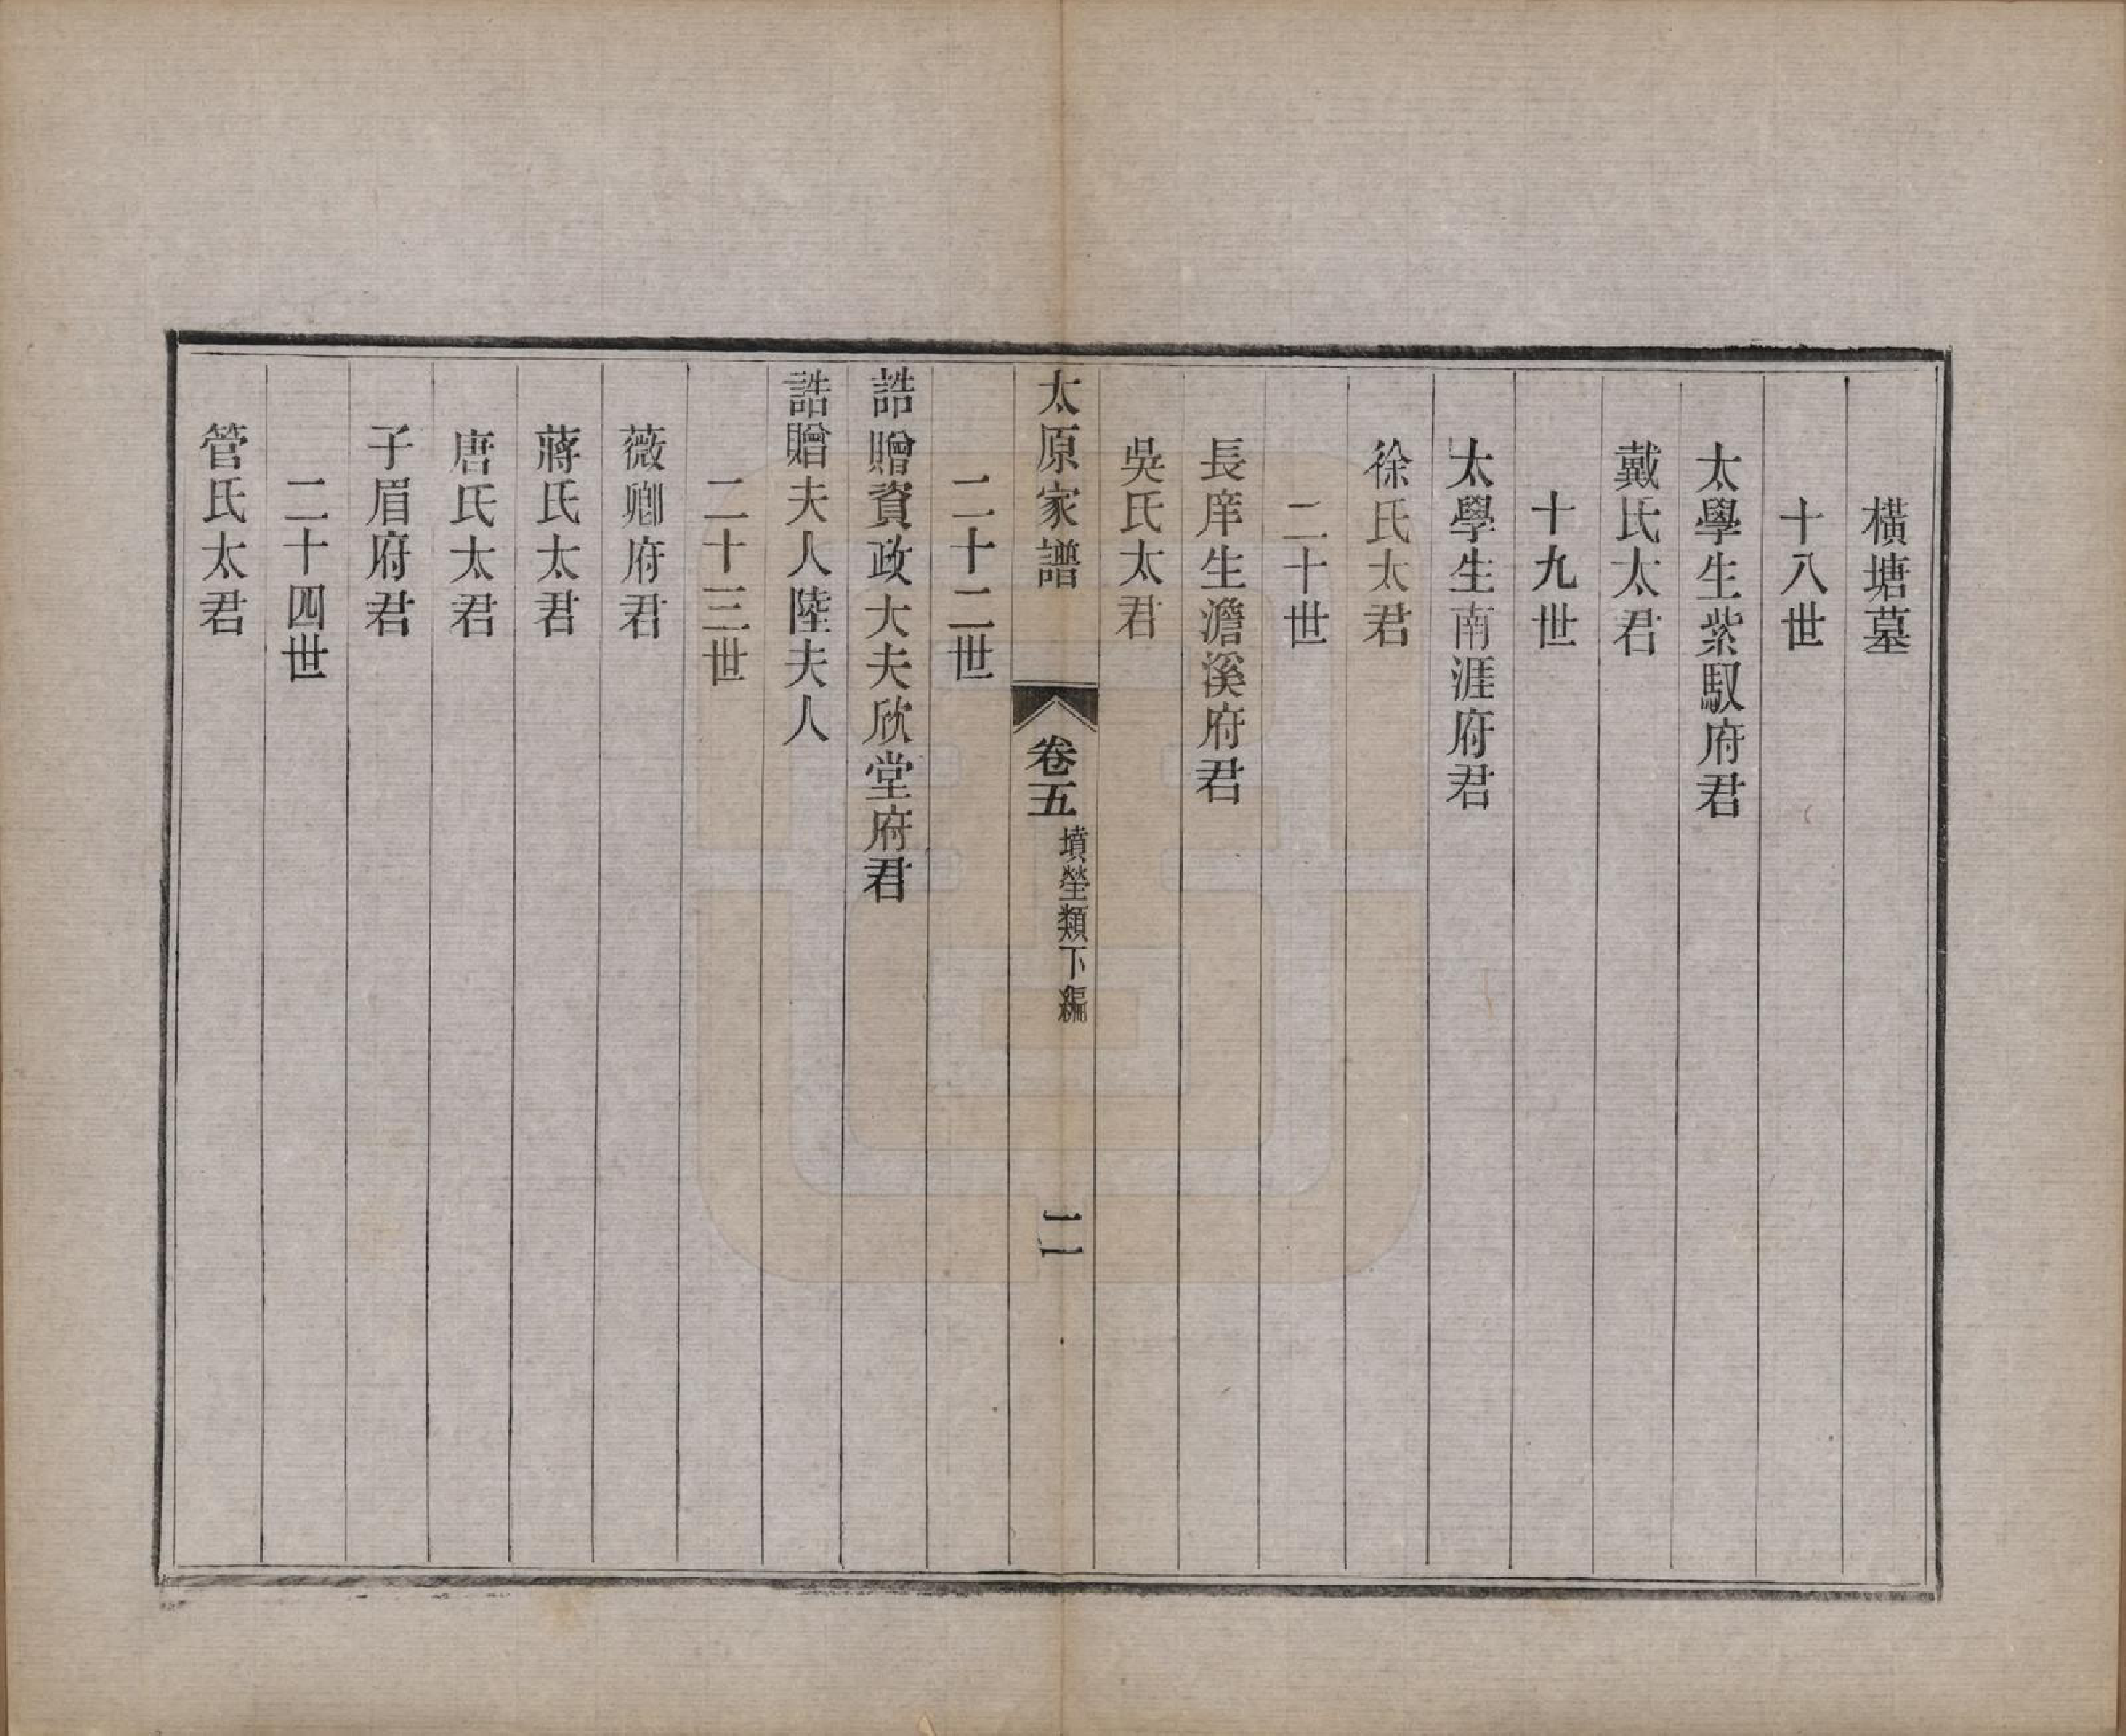 橫塘墓
十八世
太學生紫馭府君
戴氏太君
十九世
太學生南涯府君
徐氏太君
二十世
長庠生澹溪府君
吳氏太君
太原家譜
卷五
墳塋類下編
二
二十二世
誥贈資政大夫欣堂府君
誥贈夫人陸夫人
二十三世
薇卿府君
蔣氏太君
唐氏太君
子眉府君
二十四世
管氏太君